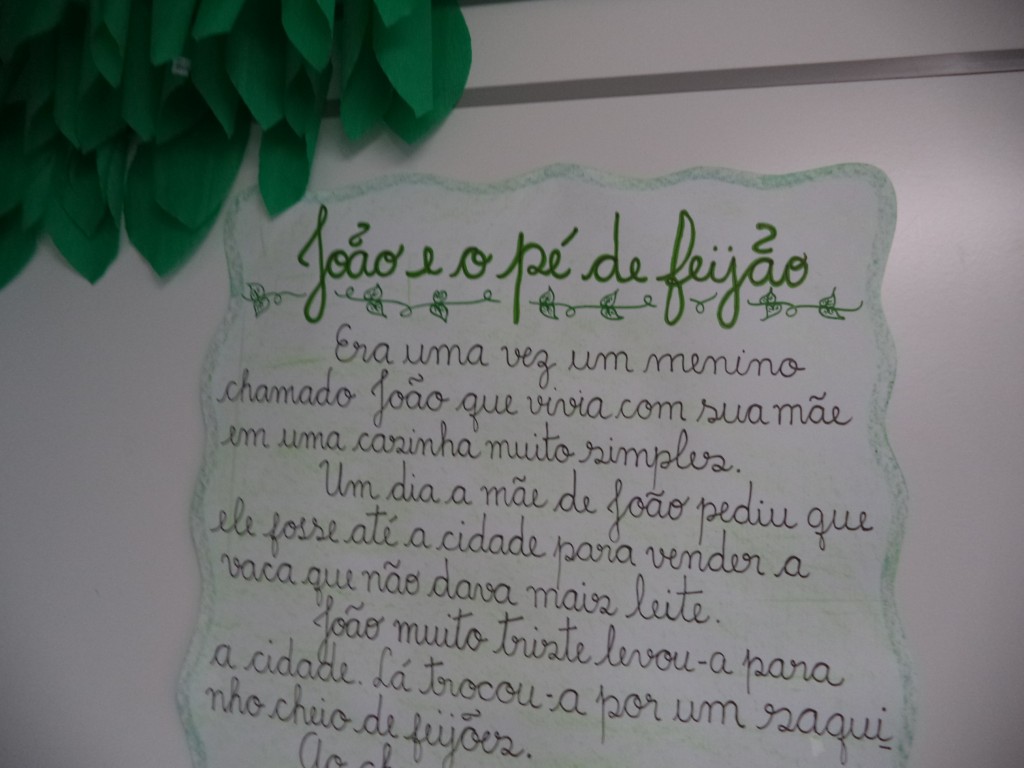 João e o pé de feijão
Era uma vez um menino
chamado João que vivia com sua mãe
em uma casinha muito simples.
Um dia a mãe de João pediu que
ele fosse até a cidade para vender a
vaca que não dava mais leite.
João muito triste levou-a para
a cidade. Lá trocou-a por um saqui
nho cheio de feijões.
Ao